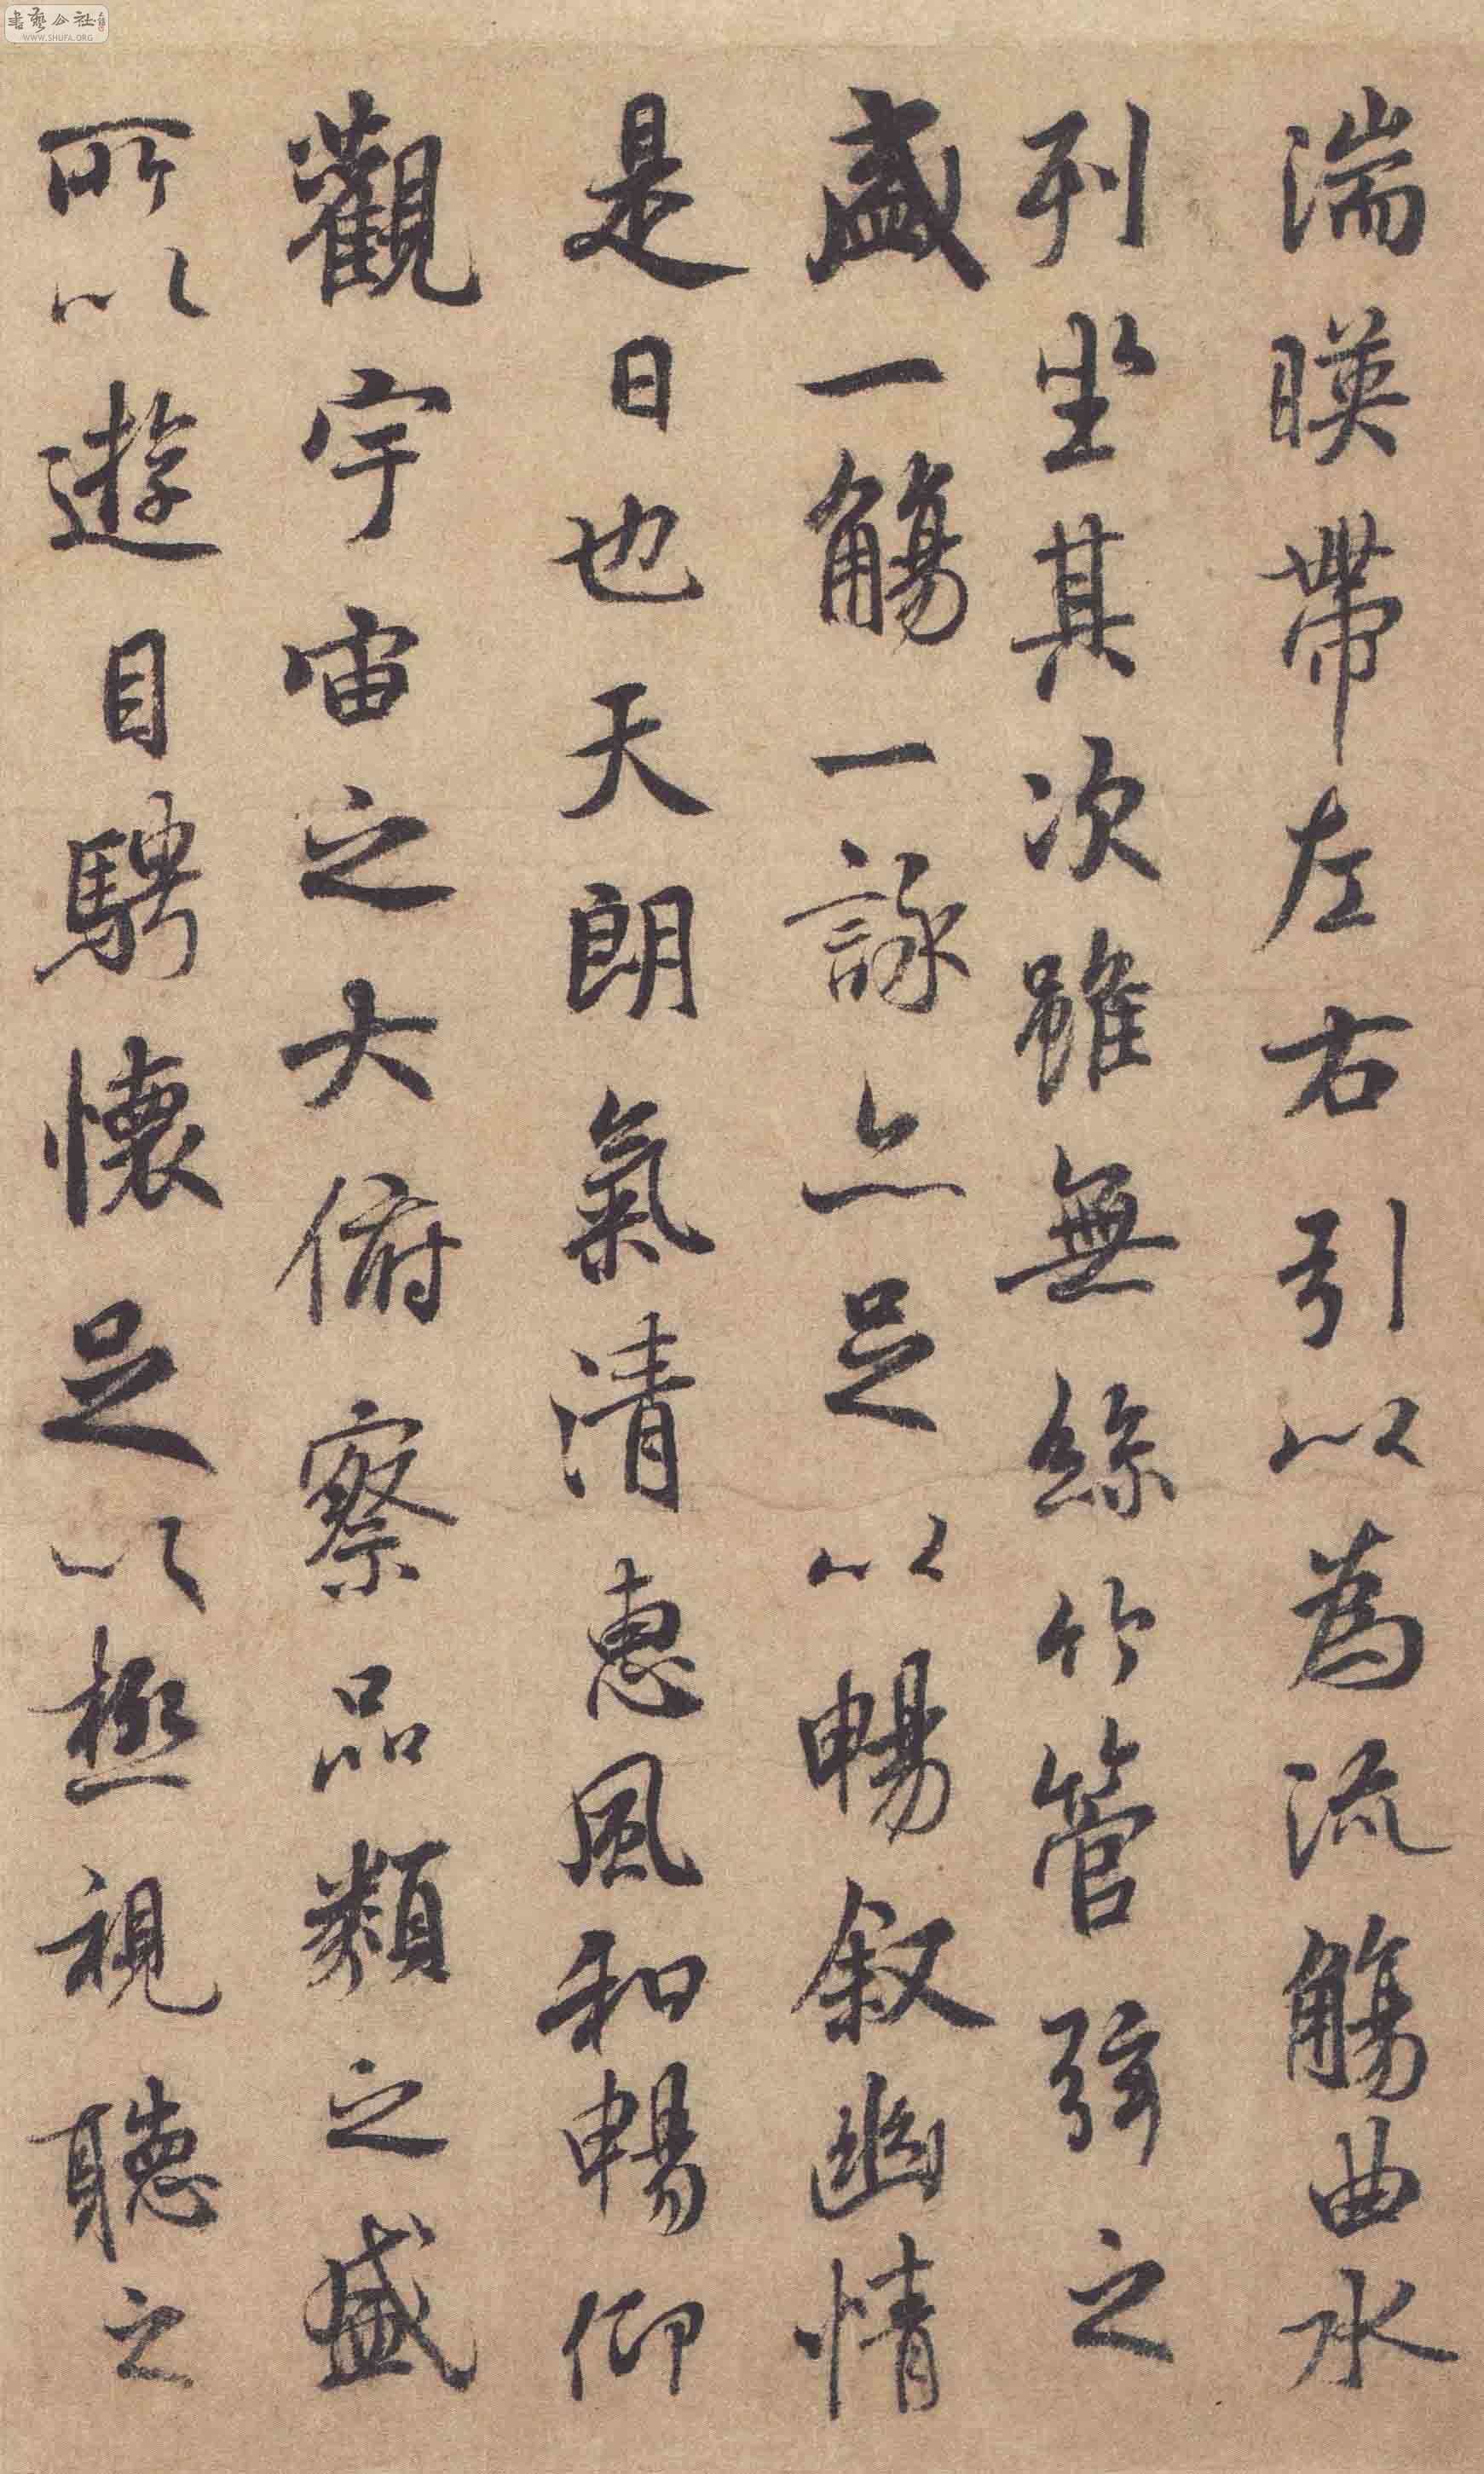 湍暎帶左右引以為流觴曲水
列坐其次雖無絲竹管弦之
盛一觴一詠亦足以暢叙幽情
是日也天朗氣清惠風和暢仰
觀宇宙之大俯察品類之盛
所以遊目騁懷足以極視聽之
書藝公社
WWW.SHUFA.ORG